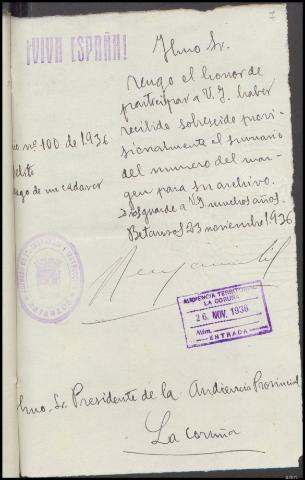 7
¡VIVA ESPAÑA!
Ilmo Sr.
Tengo el honor de
participar a V.I. haber
recibido sobreseido provi-
sionalmente el sumario
del numero del mar-
gen para su archivo.
Dios guarde a VI muchos años.
Betanzos 23 noviembre 1936
nº 100 de 1936
delito
de un cadaver
AUDIENCIA TERRITORIAL
LA CORUÑA
26. NOV. 1936
Núm.
ENTRADA
Ilmo. Sr. Presidente de la Audiencia Provincial
La Coruña